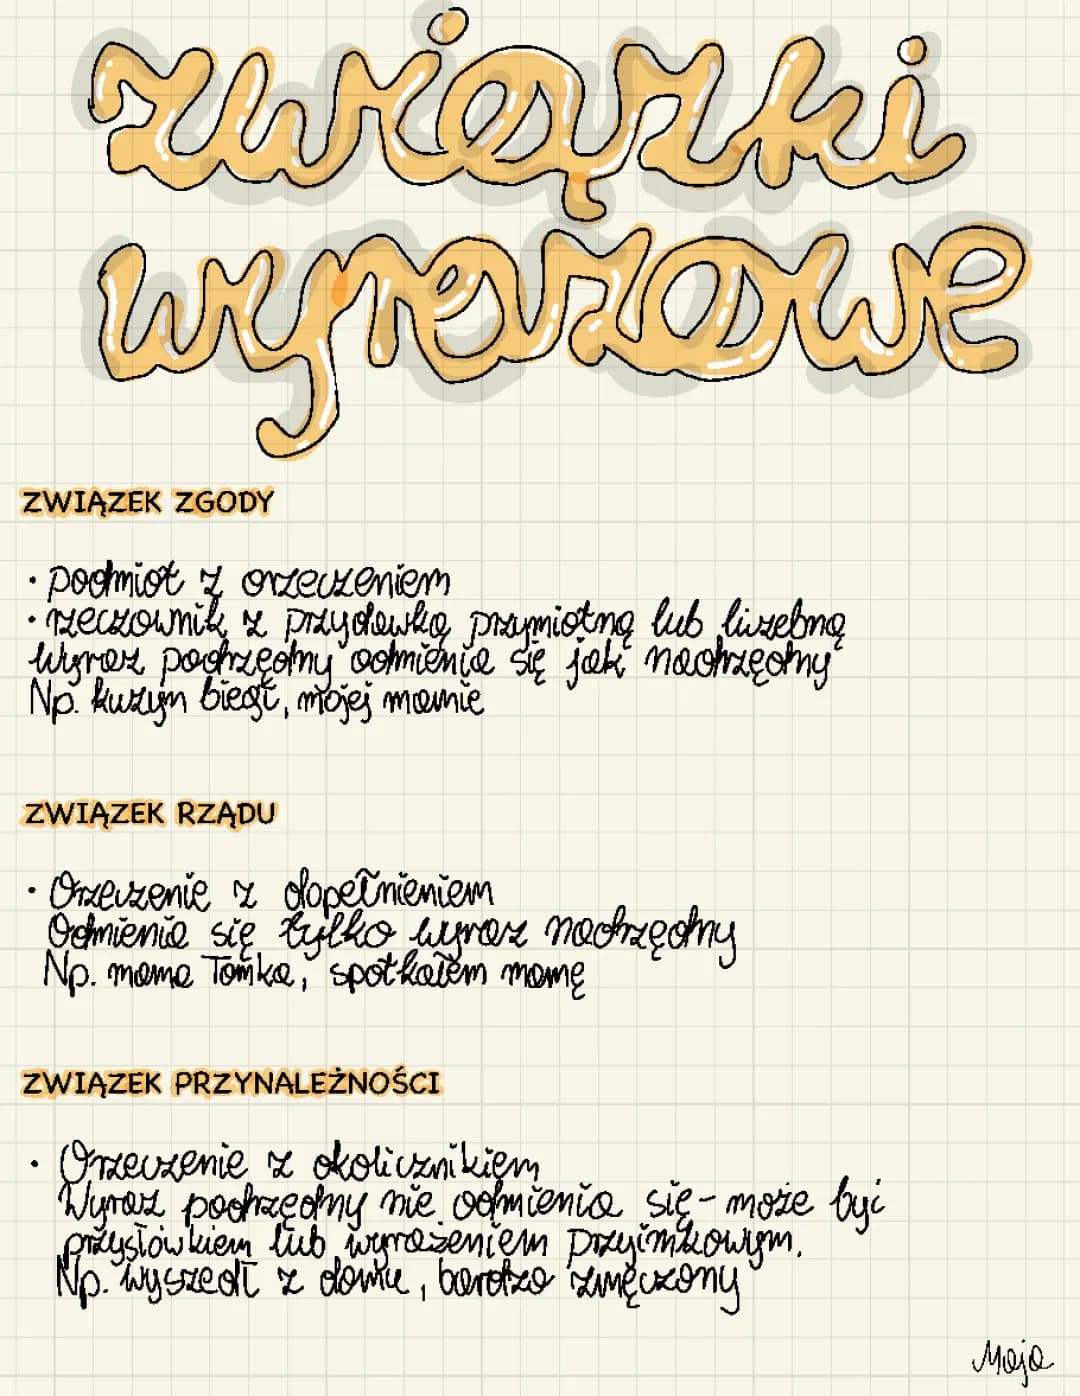 związki
wyrazowe
ZWIĄZEK ZGODY
• podmiot z orzeczeniem
• rzeczownik z przydawką przymiotną lub liczebną
Wyraz podrzędny odmienia się jak nadrzędny
Np. kuzyn biegł, mojej mamie
ZWIĄZEK RZĄDU
• Orzeczenie z dopełnieniem
Odmienia się tylko wyraz nadrzędny
Np. mama Tomka, spotkałem mamę
ZWIĄZEK PRZYNALEŻNOŚCI
• Orzeczenie z okolicznikiem
Wyraz podrzędny nie odmienia się - może być
przysłówkiem lub wyrażeniem przyimkowym.
Np. wyszedł z domu, bardzo zmęczony
Maja